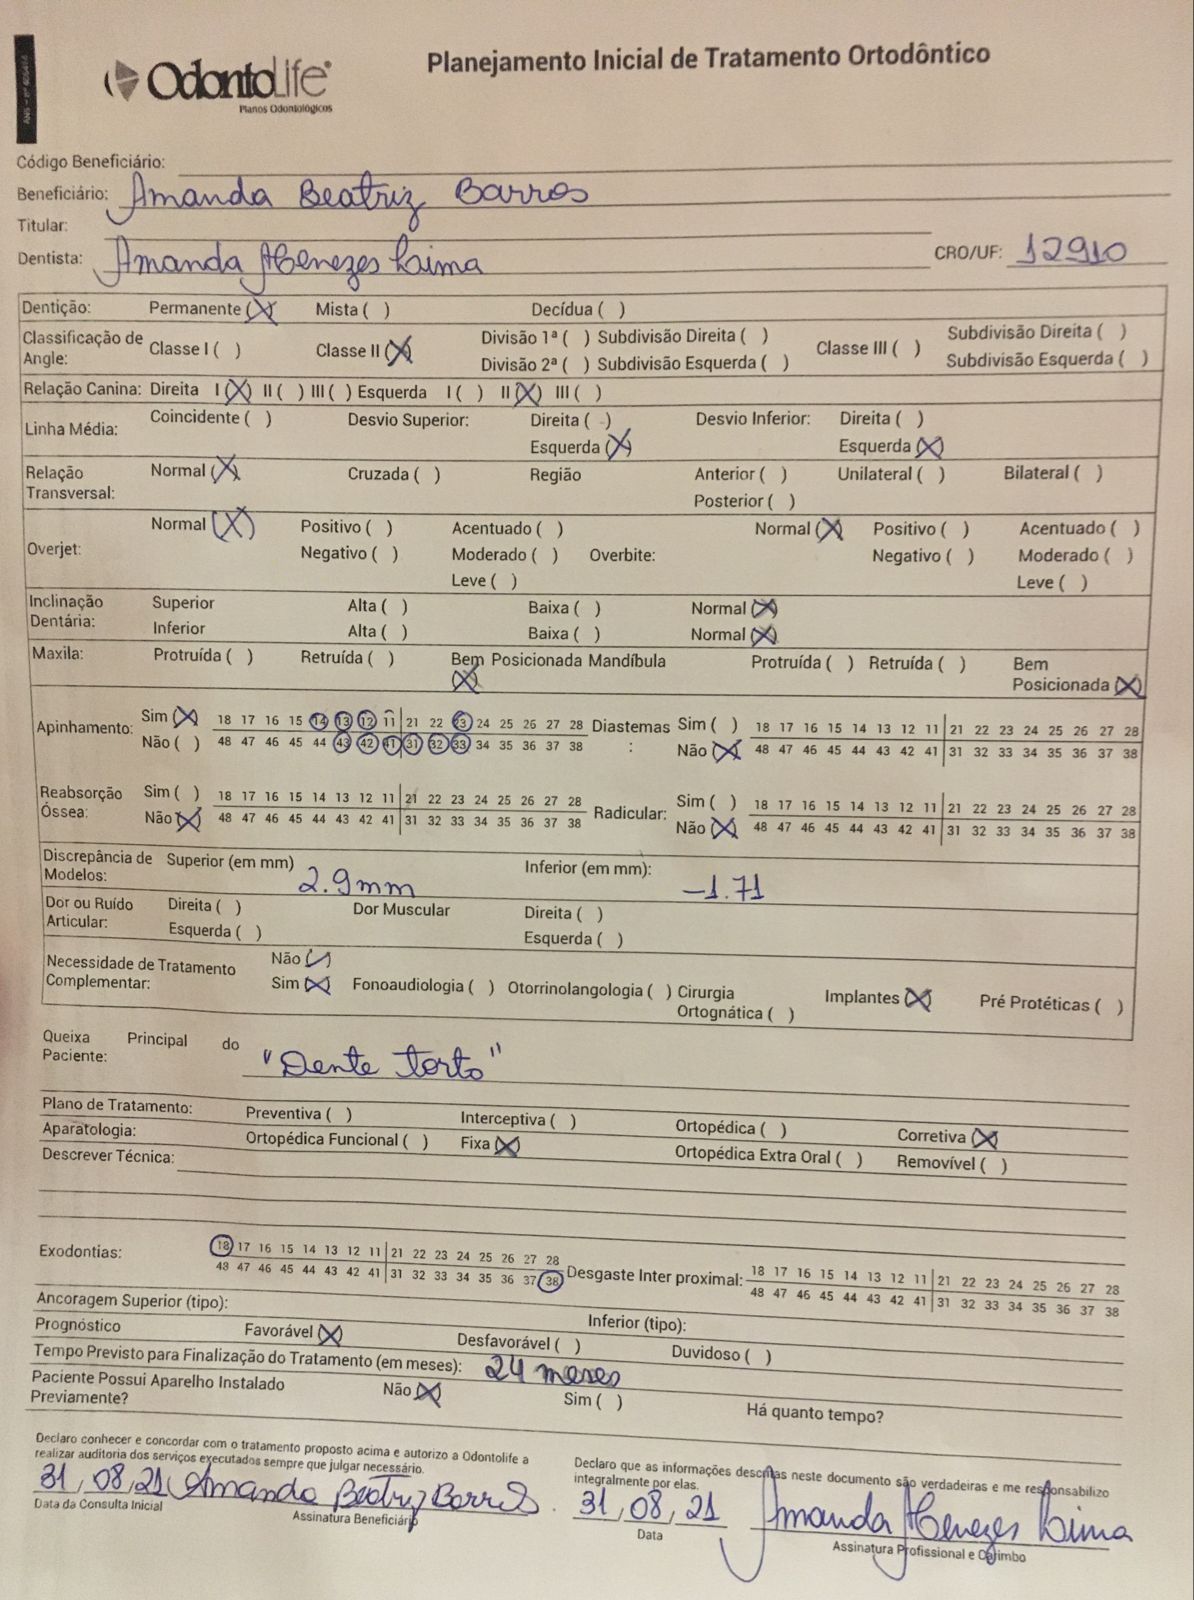 Planejamento Inicial de Tratamento Ortodôntico
OdontoLife®
Planos Odontológicos
Código Beneficiário:
Beneficiário: Amanda Beatriz Barros
Titular:
Dentista: Amanda Menezes Lima CRO/UF: 12910
Dentição: Permanente (X) Mista ( ) Decídua ( )
Classificação de Angle: Classe I ( ) Classe II (X) Divisão 1ª ( ) Subdivisão Direita ( ) Classe III ( ) Subdivisão Direita ( )
Divisão 2ª ( ) Subdivisão Esquerda ( ) Subdivisão Esquerda ( )
Relação Canina: Direita I (X) II ( ) III ( ) Esquerda I ( ) II (X) III ( )
Linha Média: Coincidente ( ) Desvio Superior: Direita ( ) Desvio Inferior: Direita ( )
Esquerda (X) Esquerda (X)
Relação Transversal: Normal (X) Cruzada ( ) Região Anterior ( ) Unilateral ( ) Bilateral ( )
Posterior ( )
Overjet: Normal (X) Positivo ( ) Acentuado ( ) Overbite: Normal (X) Positivo ( ) Acentuado ( )
Negativo ( ) Moderado ( ) Negativo ( ) Moderado ( )
Leve ( ) Leve ( )
Inclinação Dentária: Superior Alta ( ) Baixa ( ) Normal (X)
Inferior Alta ( ) Baixa ( ) Normal (X)
Maxila: Protruída ( ) Retruída ( ) Bem Posicionada (X) Mandíbula Protruída ( ) Retruída ( ) Bem Posicionada (X)
Apinhamento: Sim (X) 18 17 16 15 14 13 12 11 21 22 23 24 25 26 27 28 Diastemas: Sim ( ) 18 17 16 15 14 13 12 11 21 22 23 24 25 26 27 28
Não ( ) 48 47 46 45 44 43 42 41 31 32 33 34 35 36 37 38 Não (X) 48 47 46 45 44 43 42 41 31 32 33 34 35 36 37 38
Reabsorção Óssea: Sim ( ) 18 17 16 15 14 13 12 11 21 22 23 24 25 26 27 28 Radicular: Sim ( ) 18 17 16 15 14 13 12 11 21 22 23 24 25 26 27 28
Não (X) 48 47 46 45 44 43 42 41 31 32 33 34 35 36 37 38 Não (X) 48 47 46 45 44 43 42 41 31 32 33 34 35 36 37 38
Discrepância de Modelos: Superior (em mm) 2.9mm Inferior (em mm): -1.71
Dor ou Ruído Articular: Direita ( ) Dor Muscular Direita ( )
Esquerda ( ) Esquerda ( )
Necessidade de Tratamento Complementar: Não ( )
Sim (X) Fonoaudiologia ( ) Otorrinolangologia ( ) Cirurgia Ortognática ( ) Implantes (X) Pré Protéticas ( )
Queixa Principal do Paciente: "Dente torto"
Plano de Tratamento: Preventiva ( ) Interceptiva ( ) Ortopédica ( ) Corretiva (X)
Aparatologia: Ortopédica Funcional ( ) Fixa (X) Ortopédica Extra Oral ( ) Removível ( )
Descrever Técnica:
Exodontias: 18 17 16 15 14 13 12 11 21 22 23 24 25 26 27 28
48 47 46 45 44 43 42 41 31 32 33 34 35 36 37 38
Desgaste Inter proximal: 18 17 16 15 14 13 12 11 21 22 23 24 25 26 27 28
48 47 46 45 44 43 42 41 31 32 33 34 35 36 37 38
Ancoragem Superior (tipo): Inferior (tipo):
Prognóstico Favorável (X) Desfavorável ( ) Duvidoso ( )
Tempo Previsto para Finalização do Tratamento (em meses): 24 meses
Paciente Possui Aparelho Instalado Previamente? Não (X) Sim ( ) Há quanto tempo?
Declaro conhecer e concordar com o tratamento proposto acima e autorizo a Odontolife a
realizar auditoria dos serviços executados sempre que julgar necessário.
31, 08, 21 Amanda Beatriz Barros
Data da Consulta Inicial Assinatura Beneficiário
Declaro que as informações descritas neste documento são verdadeiras e me responsabilizo
integralmente por elas.
31, 08, 21 Amanda Menezes Lima
Data Assinatura Profissional e Carimbo